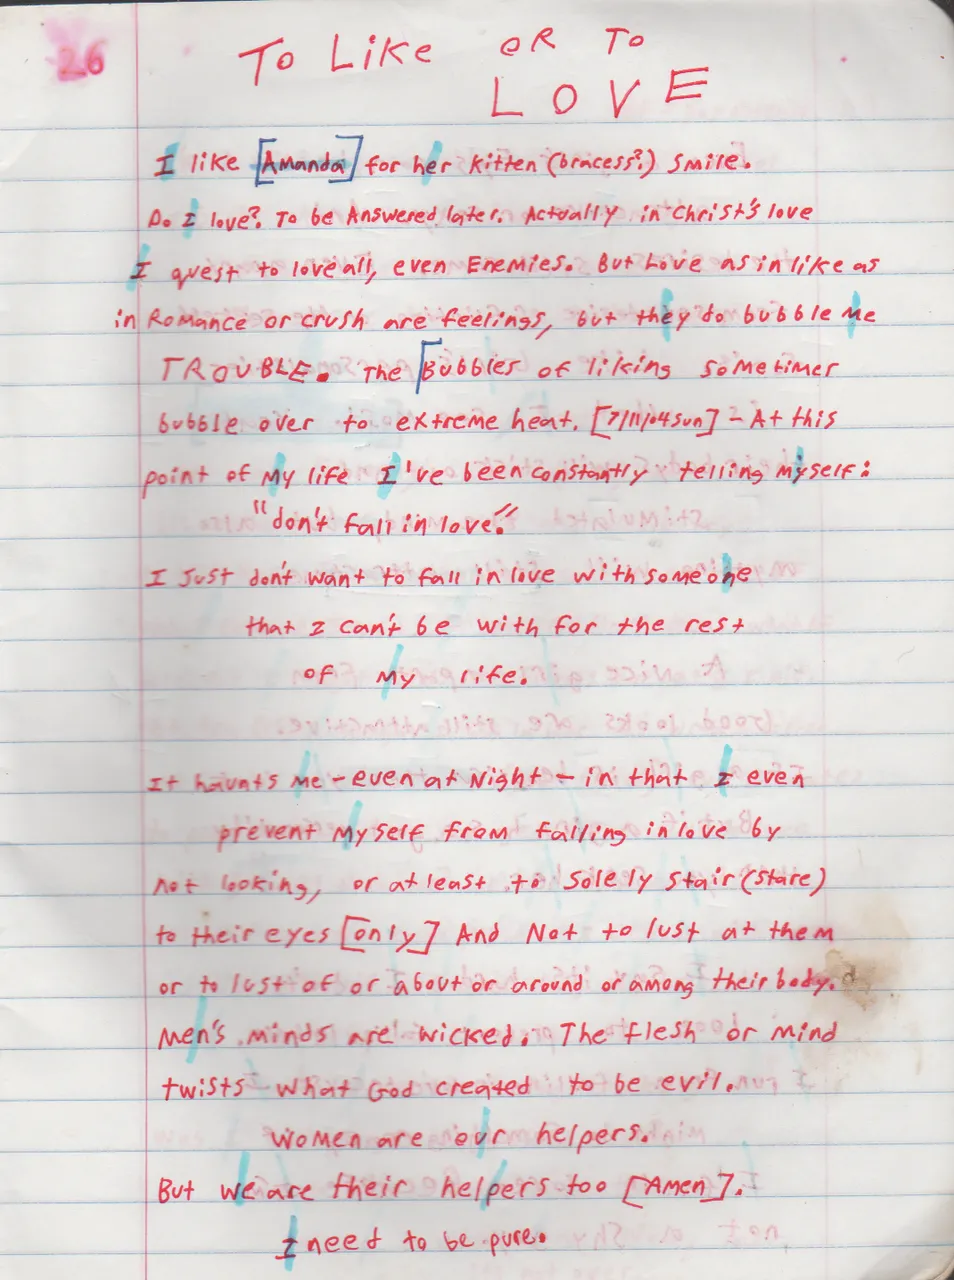 26
To Like OR To
LOVE
I like [Amanda] for her kitten (bracess?) smile.
Do I love? To be Answered later. Actually in Christ's love
I quest to love all, even Enemies. But Love as in like as
in Romance or crush are feelings, but they do bubble me
TROUBLE. The [Bubbles of liking sometimer
bubble over to extreme heat. [7/11/04 sun] - At this
point of My life I've been constantly telling myself:
"don't fall in love."
I Just don't want to fall in love with someone
that I can't be with for the rest
of My rife.
It haunts Me - even at Night - in that I even
prevent Myself from falling in love by
not looking, or at least, to solely stair (stare)
to their eyes [only] And Not to lust at them
or to lust of or about or around or among their body.
Men's minds are wicked. The flesh or mind
twists what God created to be evil.
Women are our helpers.
But we are their helpers too [Amen].
I need to be pure.